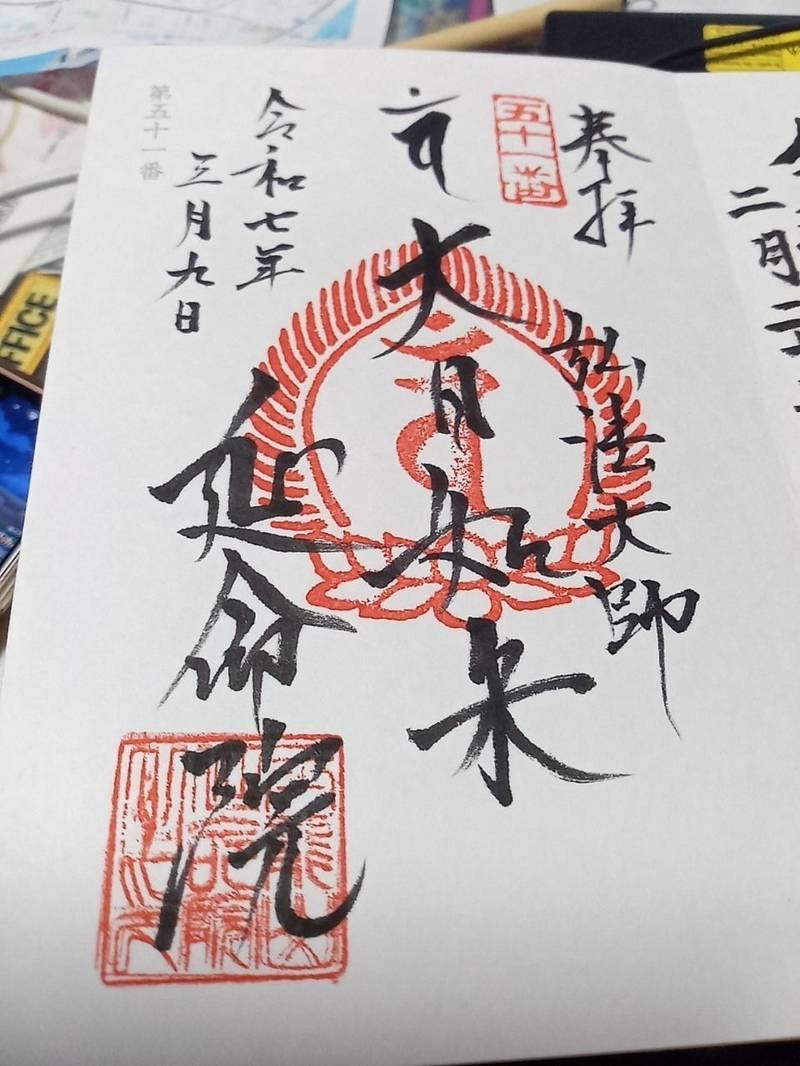 二月二
奉拝
五十一番
弘法大師
大日如来
延命院
令和七年
三月九日
第五十一番
FFICE